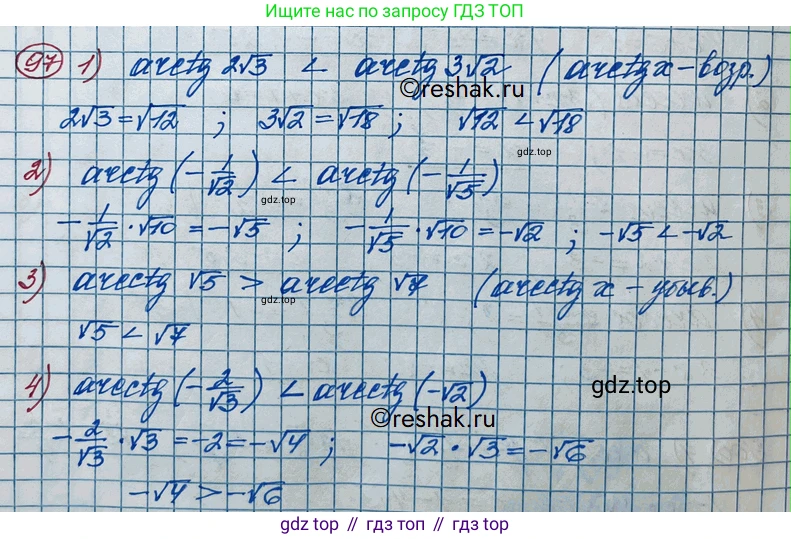 Ищите нас по запросу ГДЗ ТОП
97 1) arctg 2√3 < arctg 3√2 (arctg x – возр.)
©reshak.ru
2√3 = √12 ; 3√2 = √18 ; √12 < √18
gdz.top
2) arctg (-1/√2) < arctg (-1/√5)
gdz.top
-1/√2 · √10 = -√5 ; -1/√5 · √10 = -√2 ; -√5 < -√2
3) arcctg √5 > arcctg √7 (arcctg x – убыв.)
gdz.top
√5 < √7
4) arcctg (-2/√3) < arcctg (-√2)
gdz.top
©reshak.ru
-2/√3 · √3 = -2 = -√4 ; -√2 · √3 = -√6
-√4 > -√6
gdz top // гдз топ // gdz.top